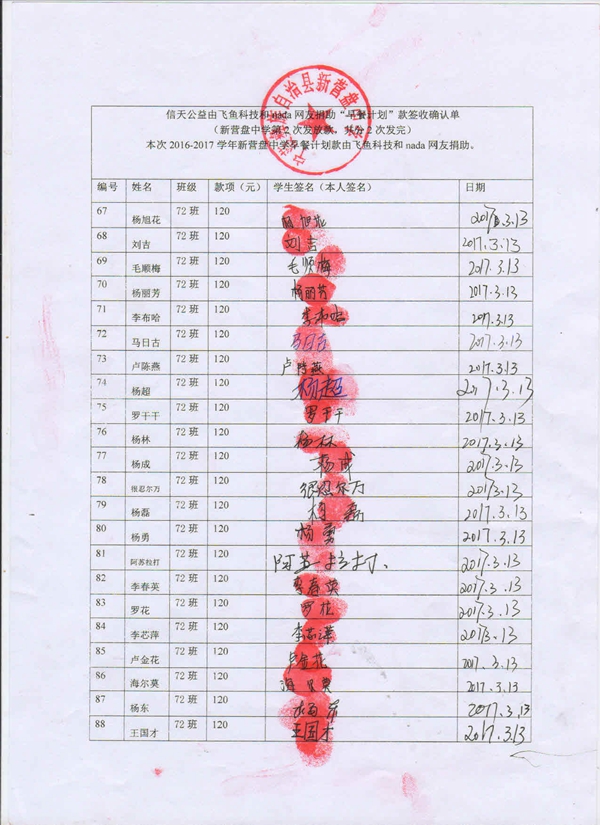 信天公益由飞鱼科技和 nada 网友捐助“早餐计划”款签收确认单
（新营盘中学第 2 次发放款，共分 2 次发完）
本次 2016-2017 学年新营盘中学早餐计划款由飞鱼科技和 nada 网友捐助。
编号 姓名 班级 款项（元） 学生签名（本人签名） 日期
67 杨旭花 72 班 120 杨旭花 2017.3.13
68 刘吉 72 班 120 刘吉 2017.3.13
69 毛顺梅 72 班 120 毛顺梅 2017.3.13
70 杨丽芳 72 班 120 杨丽芳 2017.3.13
71 李布哈 72 班 120 李布哈 2017.3.13
72 马日古 72 班 120 马日古 2017.3.13
73 卢陈燕 72 班 120 卢陈燕 2017.3.13
74 杨超 72 班 120 杨超 2017.3.13
75 罗干干 72 班 120 罗干干 2017.3.13
76 杨林 72 班 120 杨林 2017.3.13
77 杨成 72 班 120 杨成 2017.3.13
78 很忍尔万 72 班 120 很忍尔万 2017.3.13
79 杨磊 72 班 120 2017.3.13
80 杨勇 72 班 120 杨勇 2017.3.13
81 阿苏拉打 72 班 120 2017.3.13
82 李春英 72 班 120 李春英 2017.3.13
83 罗花 72 班 120 罗花 2017.3.13
84 李芯萍 72 班 120 李芯萍 2017.3.13
85 卢金花 72 班 120 卢金花 2017.3.13
86 海尔莫 72 班 120 海尔莫 2017.3.13
87 杨东 72 班 120 2017.3.13
88 王国才 72 班 120 王国才 2017.3.13